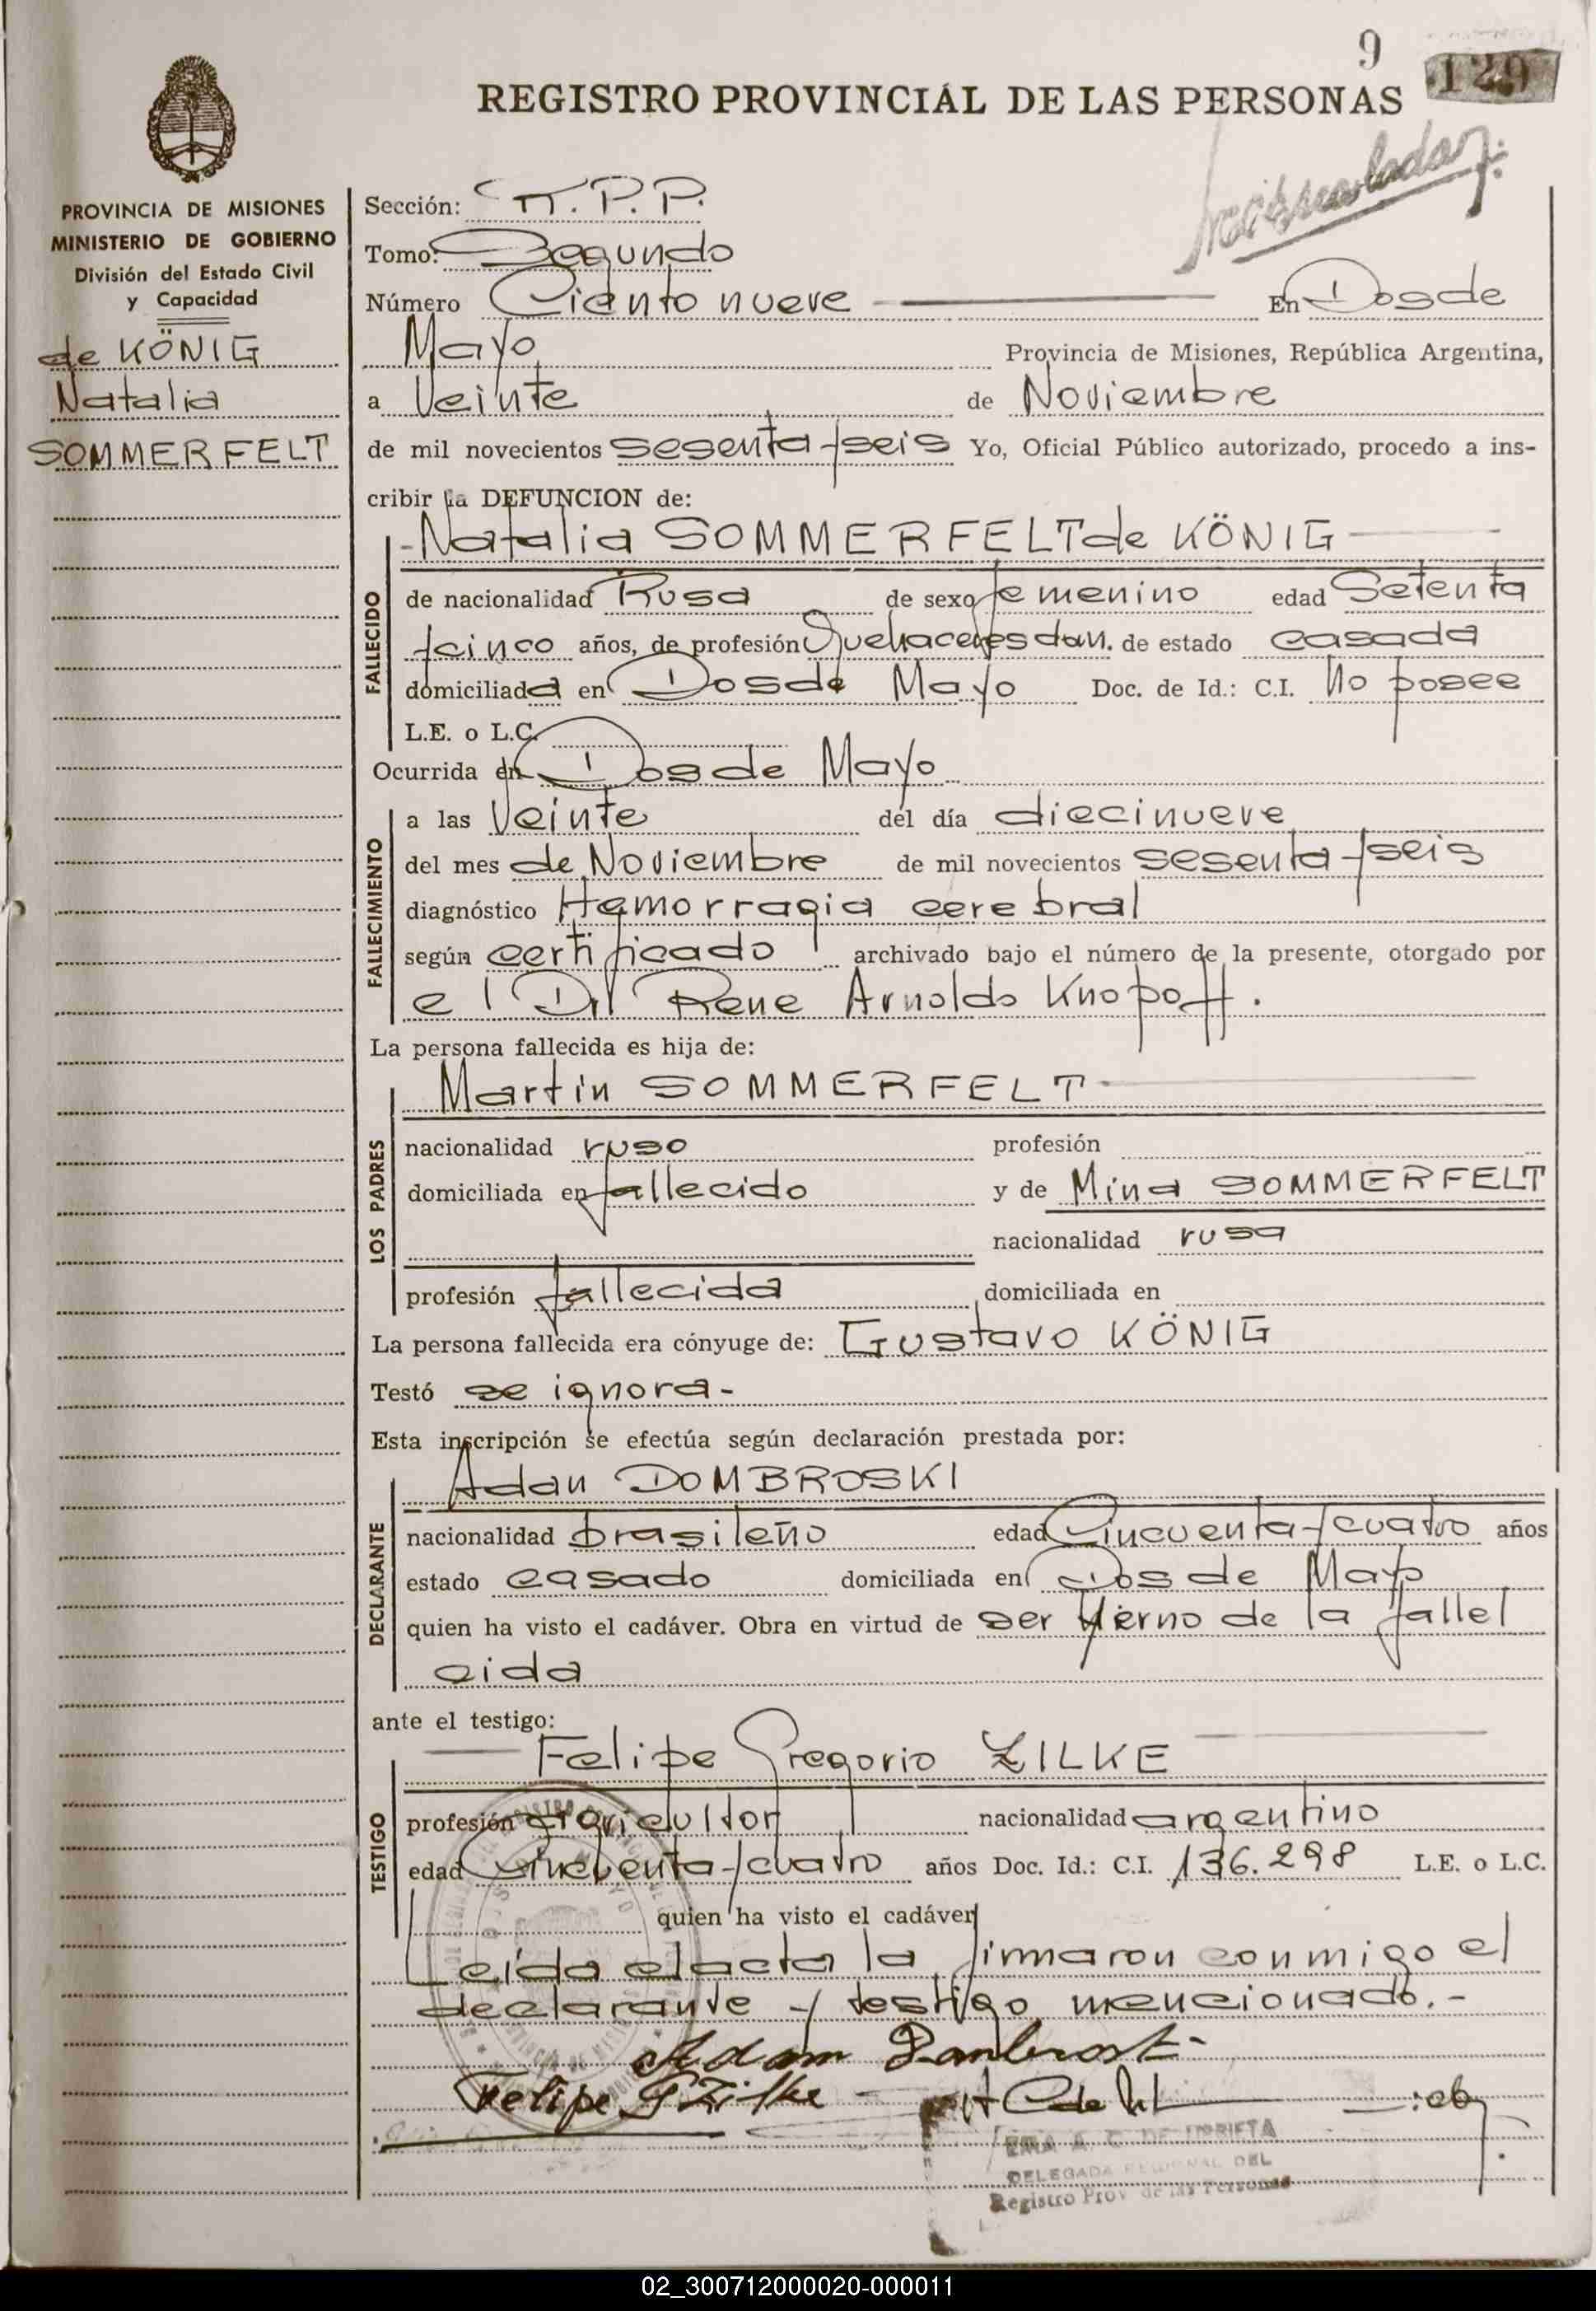 9
129
REGISTRO PROVINCIAL DE LAS PERSONAS
PROVINCIA DE MISIONES
MINISTERIO DE GOBIERNO
División del Estado Civil
y Capacidad
de KÖNIG
Natalia
SOMMERFELT
Sección: T.P.P.
Tomo: Segundo
Número Ciento nueve En Dos de
Mayo Provincia de Misiones, República Argentina,
a Veinte de Noviembre
de mil novecientos sesenta y seis Yo, Oficial Público autorizado, procedo a ins-
cribir la DEFUNCION de:
Natalia SOMMERFELT de KÖNIG
FALLECIDO
de nacionalidad Rusa de sexo femenino edad Setenta
y cinco años, de profesión Quehaceres dom. de estado casada
domiciliada en Dos de Mayo Doc. de Id.: C.I. No posee
L.E. o L.C.
Ocurrida en Dos de Mayo
FALLECIMIENTO
a las Veinte del día diecinueve
del mes de Noviembre de mil novecientos sesenta y seis
diagnóstico Hemorragia cerebral
según certificado archivado bajo el número de la presente, otorgado por
el Dr Rene Arnoldo Knopoff.
La persona fallecida es hija de:
LOS PADRES
Martin SOMMERFELT
nacionalidad ruso profesión
domiciliada en fallecido y de Mina SOMMERFELT
nacionalidad rusa
profesión fallecida domiciliada en
La persona fallecida era cónyuge de: Gustavo KÖNIG
Testó se ignora-
Esta inscripción se efectúa según declaración prestada por:
DECLARANTE
Adan DOMBROSKI
nacionalidad brasileño edad Cincuenta y cuatro años
estado casado domiciliada en Dos de Mayo
quien ha visto el cadáver. Obra en virtud de ser Yerno de la falle
cida
ante el testigo:
TESTIGO
Felipe Gregorio ZILKE
profesión agricultor nacionalidad argentino
edad Cincuenta y cuatro años Doc. Id.: C.I. 136.298 L.E. o L.C.
quien ha visto el cadáver
Leida el acta la firmaron conmigo el
declarante y testigo mencionado.-
Adam
Felipe G Zilke
DELEGADA REGIONAL DEL
Registro Prov de las Personas
02_300712000020-000011